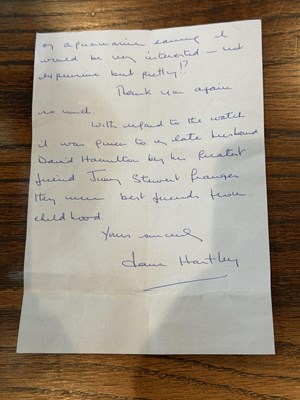 of aquamarine earring I
would be very interested – not
expensive but pretty!?
Thank you again
so much.
With regard to the watch
it was given to my late husband
David Hamilton by his greatest
friend Jimmy Stewart Granger
They were best friends from
childhood
Yours sincerely
Jane Hartley